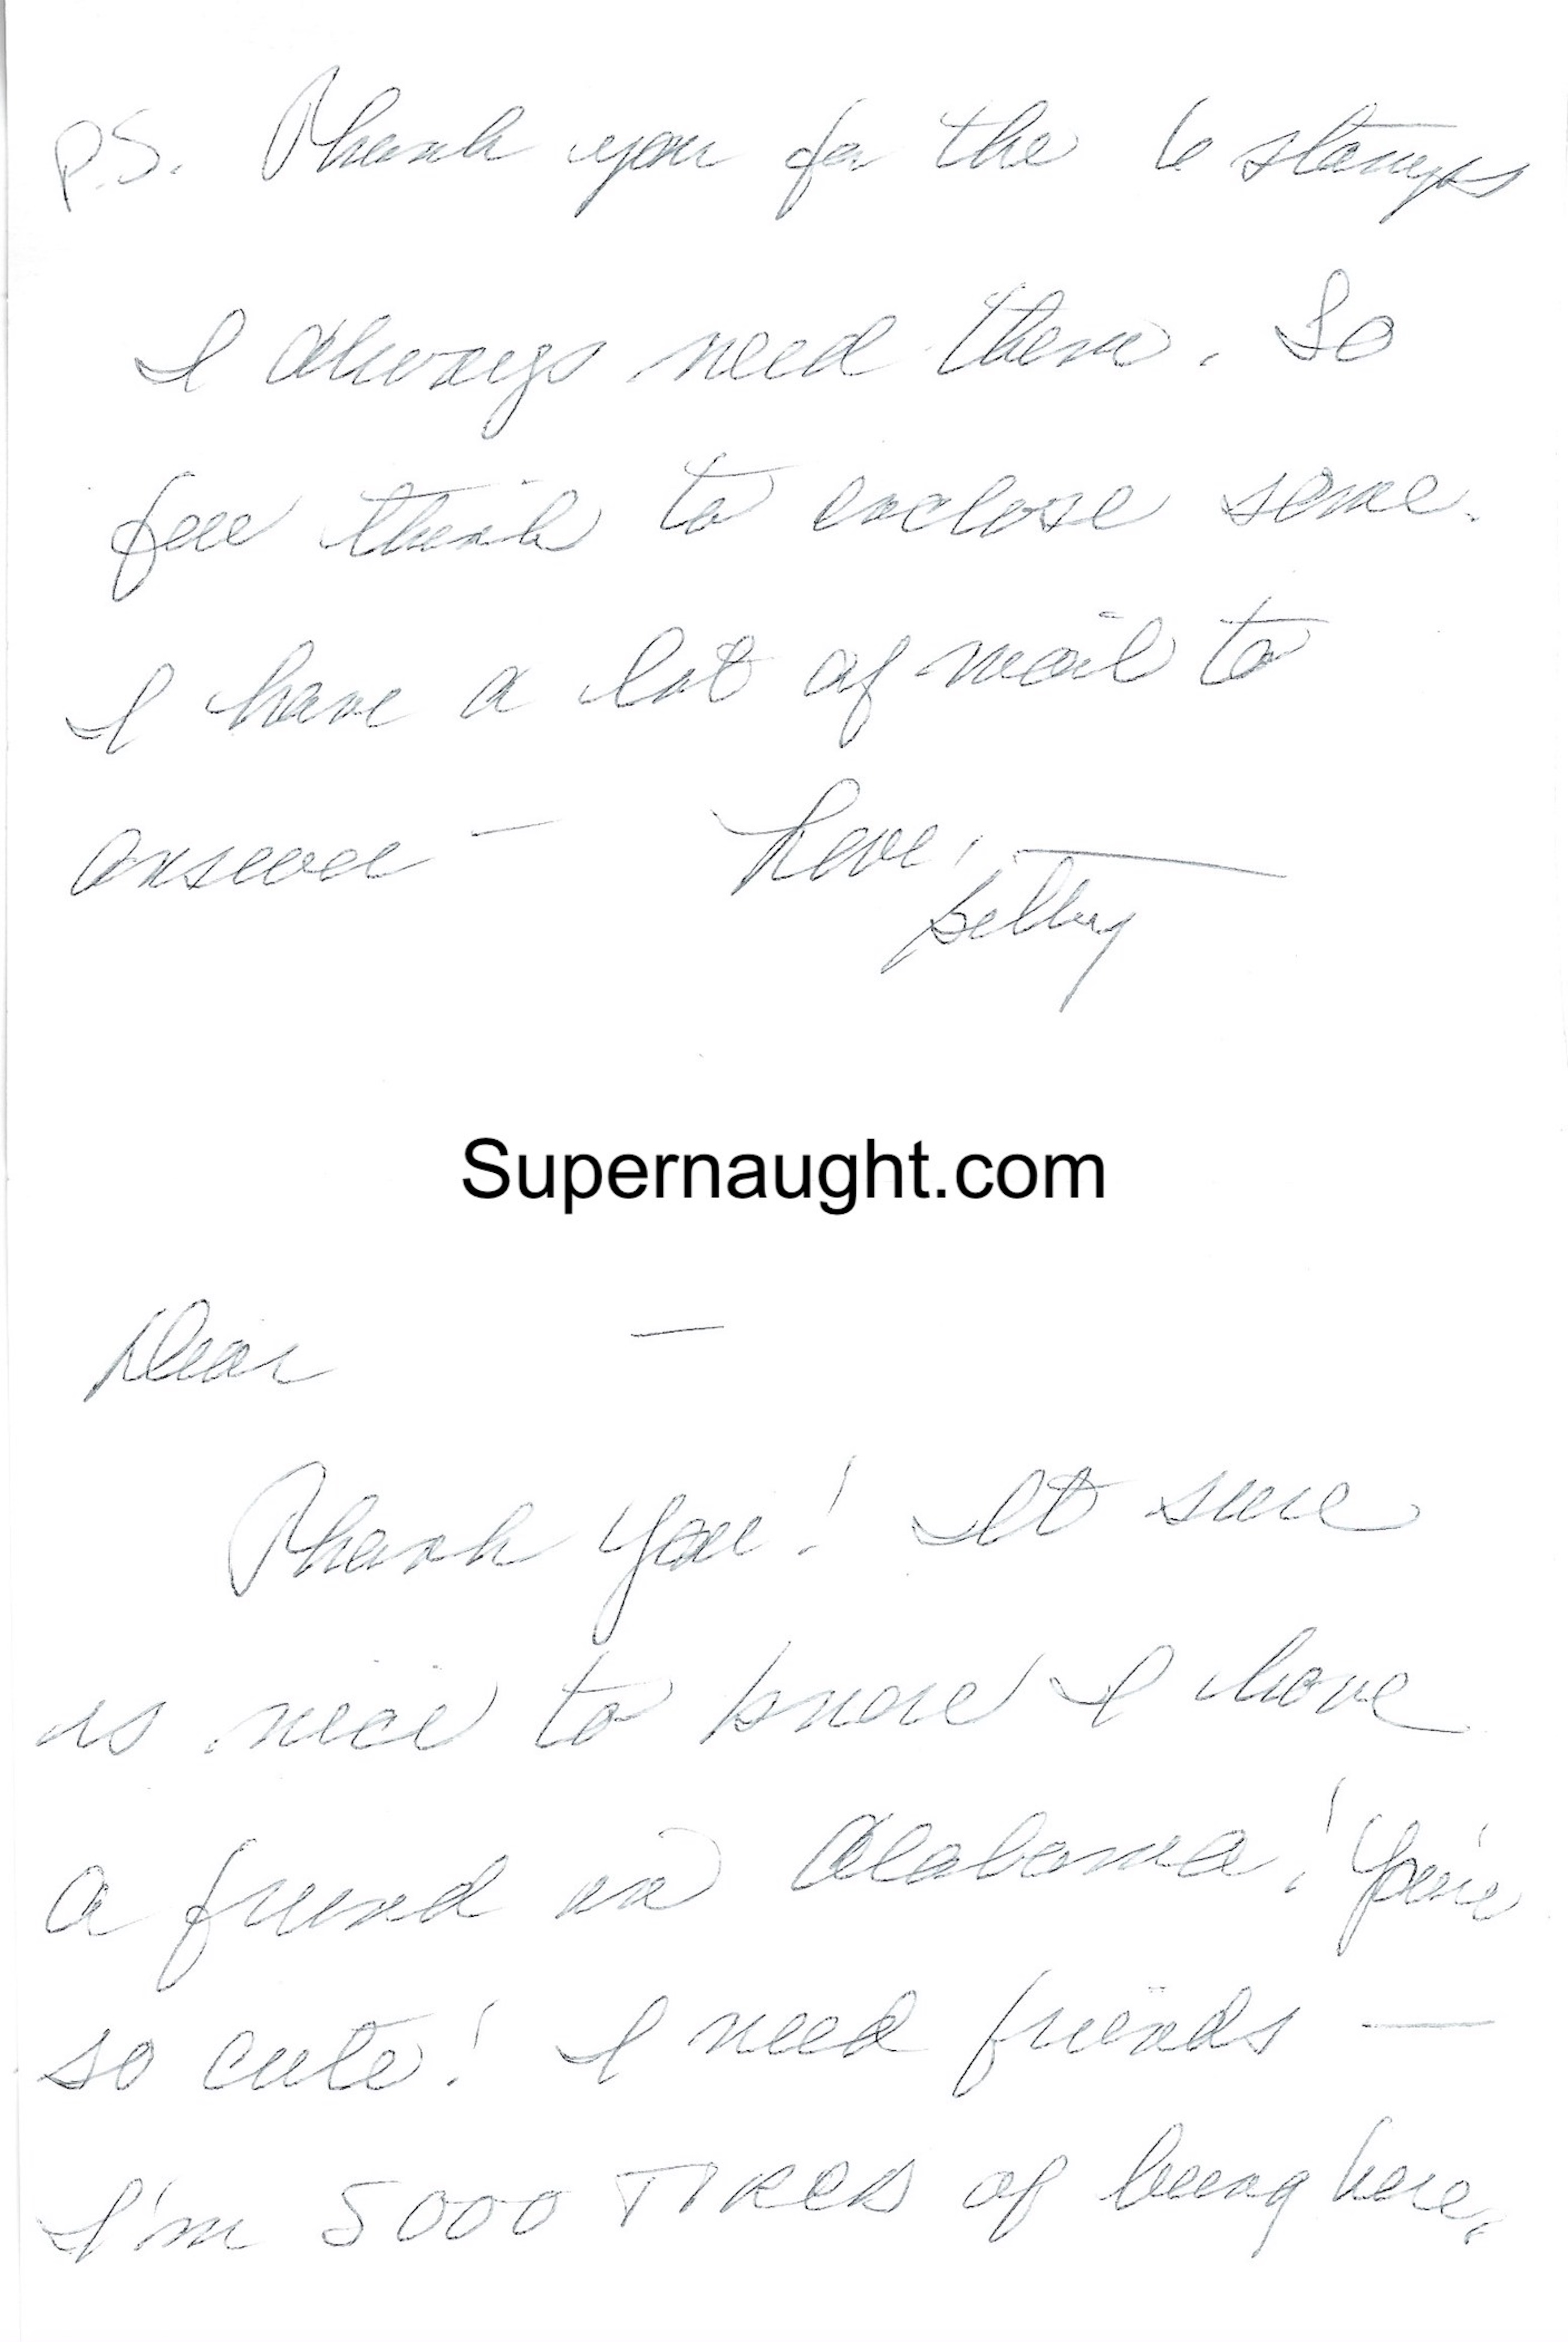 P.S. Thank you for the 6 stamps
I always need them. So
few think to enclose some.
I have a lot of mail to
answer — Love,
Supernaught.com
Dear —
Thank You! It sure
is nice to know I have
a friend in Alabama! You're
so cute! I need friends —
I'm SOOO TIRED of being here,